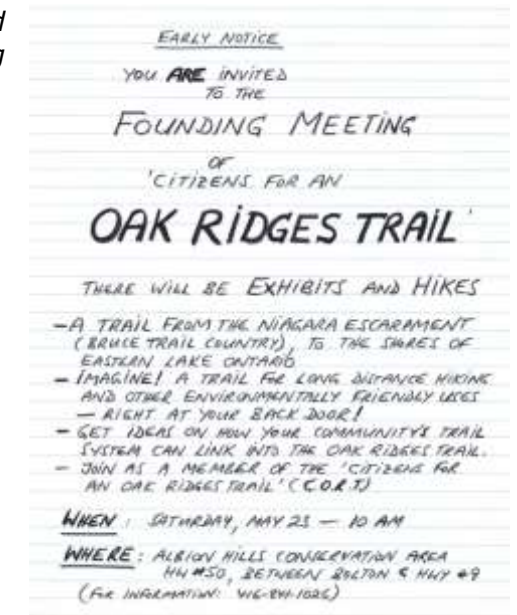 d
g
EARLY NOTICE
YOU ARE INVITED
TO THE
FOUNDING MEETING
OF
'CITIZENS FOR AN
OAK RIDGES TRAIL'
THERE WILL BE EXHIBITS AND HIKES
– A TRAIL FROM THE NIAGARA ESCARAMENT
(BRUCE TRAIL COUNTRY), TO THE SHORES OF
EASTERN LAKE ONTARIO
– IMAGINE! A TRAIL FOR LONG DISTANCE HIKING
AND OTHER ENVIRONMENTALLY FRIENDLY USES
– RIGHT AT YOUR BACK DOOR!
– GET IDEAS ON HOW YOUR COMMUNITY'S TRAIL
SYSTEM CAN LINK INTO THE OAK RIDGES TRAIL.
– JOIN AS A MEMBER OF THE 'CITIZENS FOR
AN OAK RIDGES TRAIL' (C.O.R.T)
WHEN: SATURDAY, MAY 23 – 10 AM
WHERE: ALBION HILLS CONSERVATION AREA
#50, BETWEEN BOLTON & HWY #9
(FOR INFORMATION: